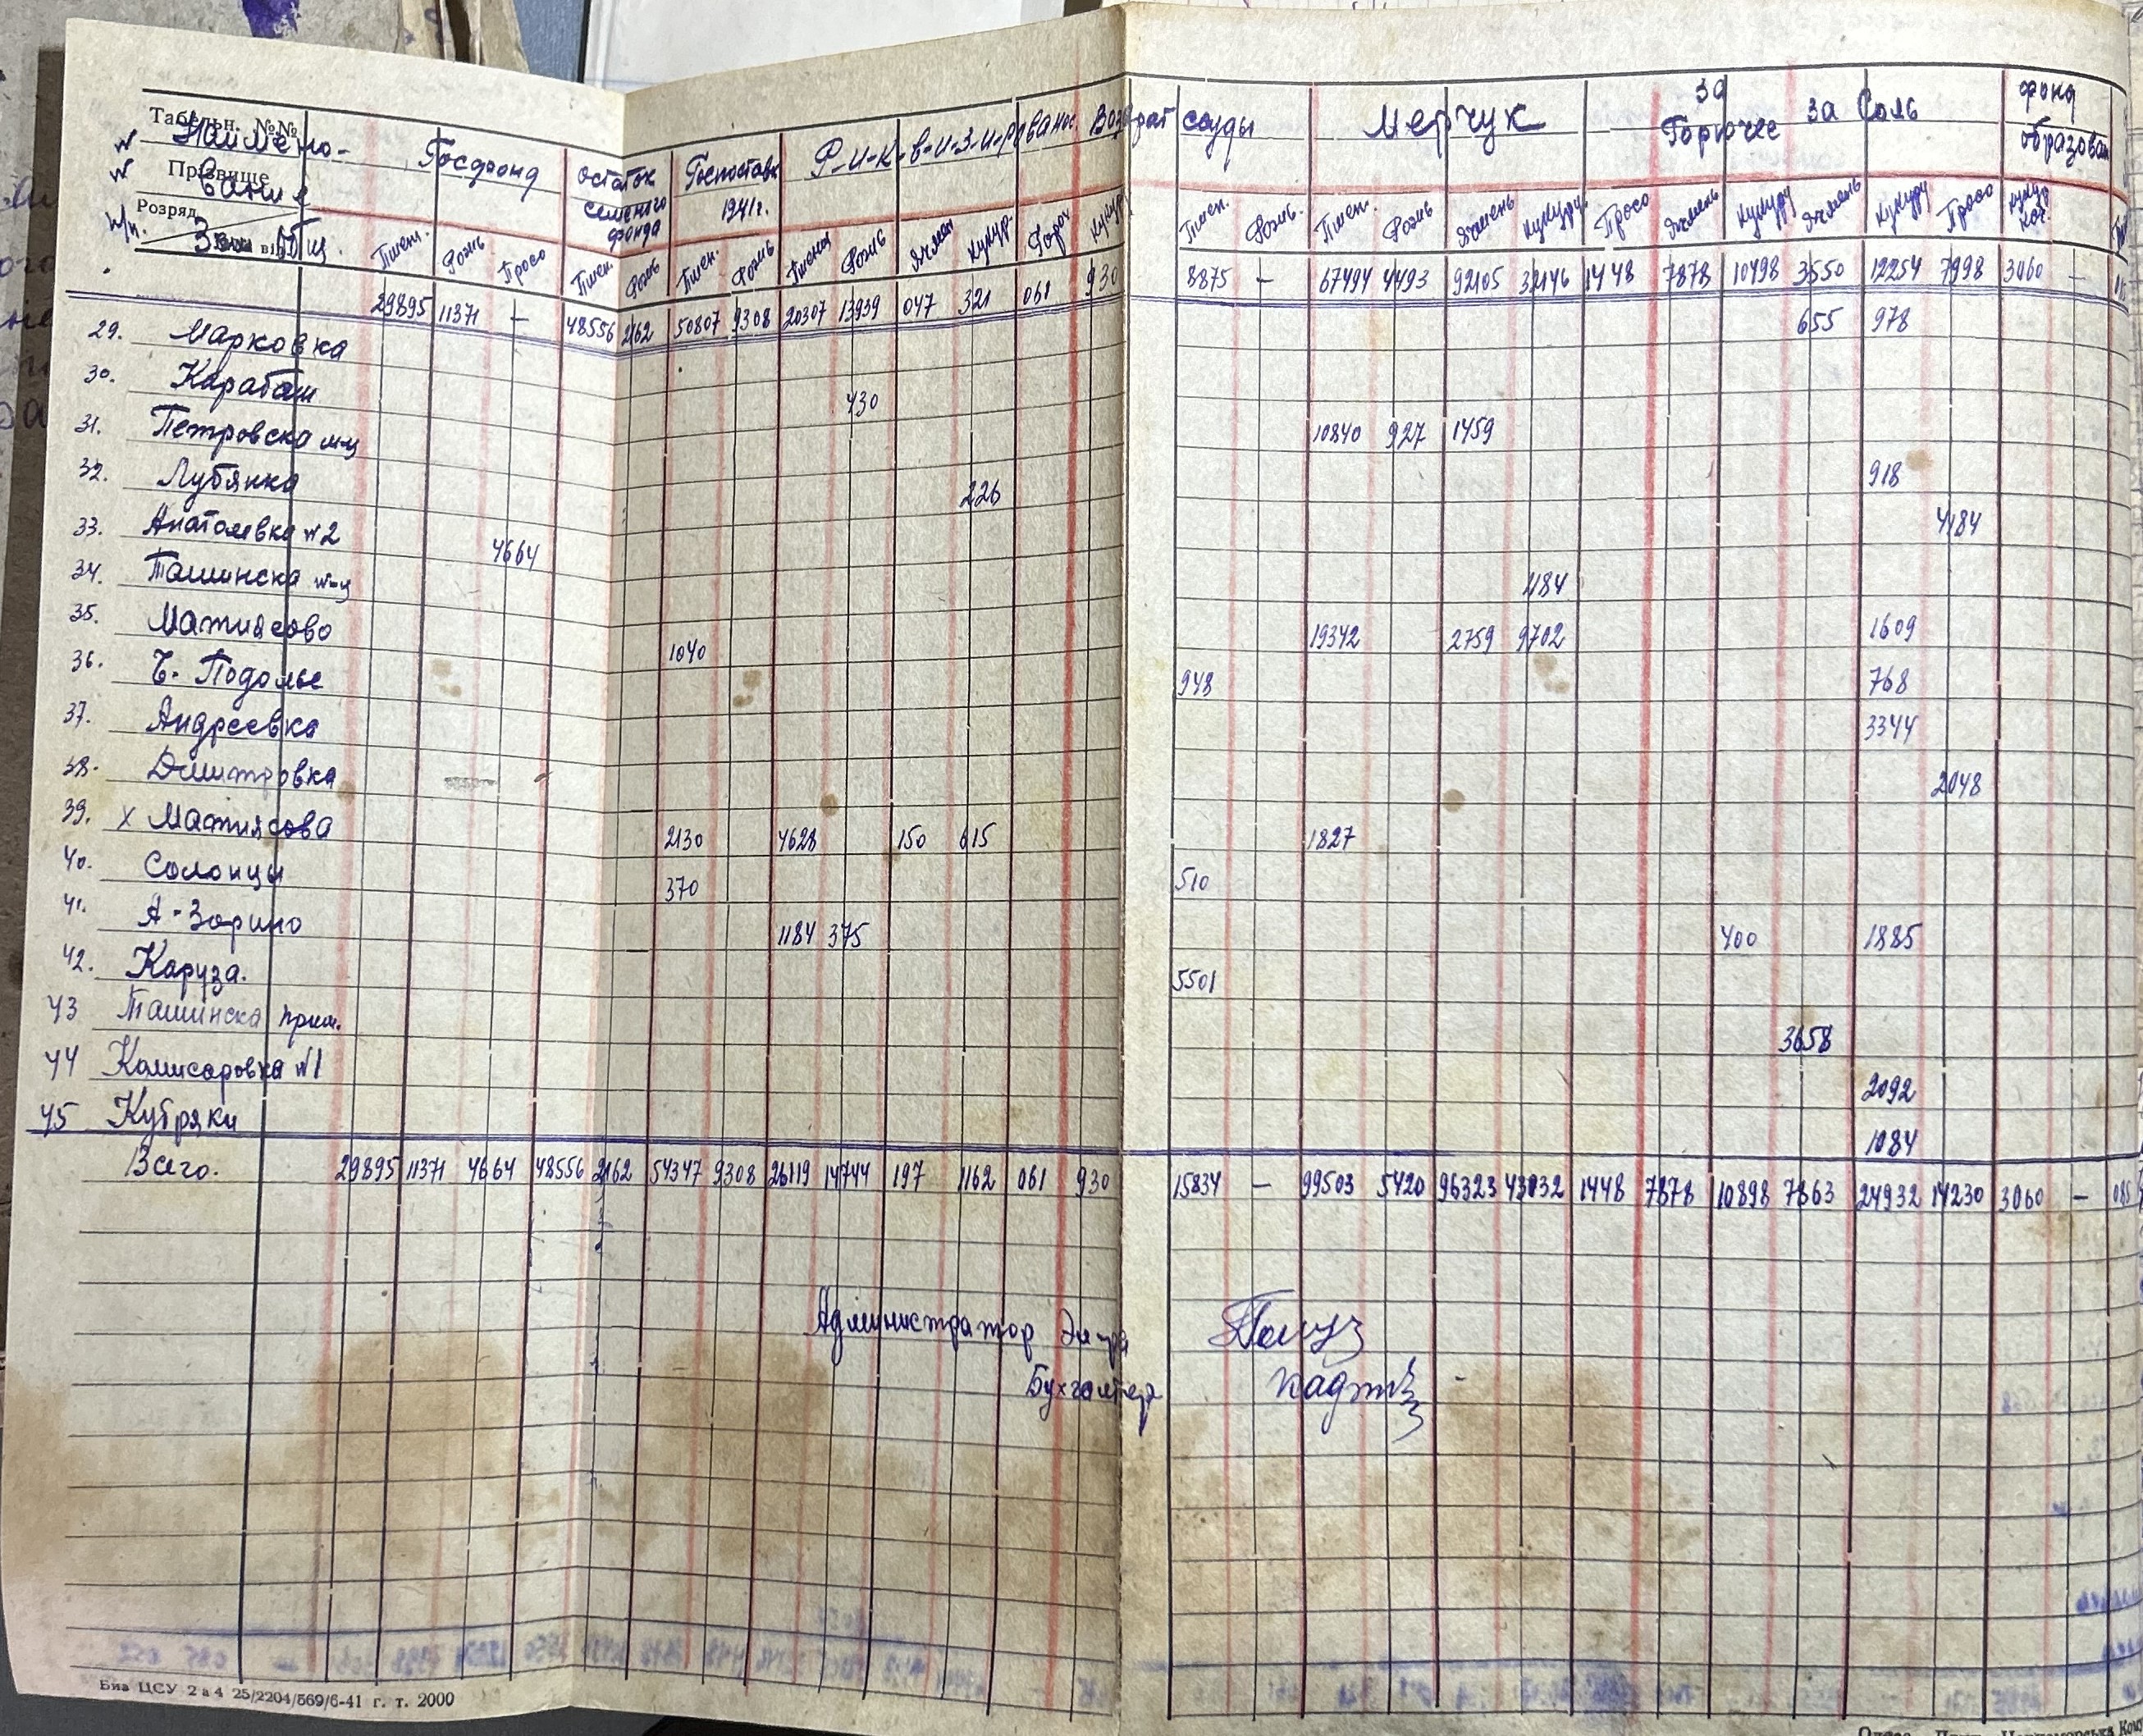 Табельн. №№ Наймено-
Прізвище вание
Розряд
Заг. від общ.
Госфонд остаток семеного фонда Госпоставк 1941г. Р-и-к-в-и-з-и-рованос Возврат ссуды Мерчук за Горючее за Соль фонд образован
Пшен. Рожь Просо Пшен. Рожь Пшен. Рожь Пшениц Рожь Ячмен Кукур. Горох Кукур. Пшен. Рожь. Пшен. Рожь Ячмень Кукуруз Просо Ячмень Кукуруз Ячмень Кукуруз Просо
29895 11371 — 48556 2162 50807 9308 20307 13939 047 321 061 930 8875 — 67494 4493 92105 32146 1448 7878 10498 3550 12254 7998 3060 —
29. Марковка 655 978
30. Карабаш
31. Петровска м-ц 430 10840 927 1459
32. Лубянка 918
33. Анатольевка №2 4664 226 4184
34. Ташинска м-ц 1184
35. Матиясово 1040 19342 2759 9702 1609
36. Б. Подолье 948 768
37. Андреевка 3344
38. Дмитровка 2048
39. х Матиясова 2130 4628 150 615 1827
40. Солонцы 370 510
41. А-Зорино 1184 375 400 1885
42. Каруза. 5501
43 Ташинска прим. 3658
44 Комисаровка №1 2092
45 Кубряки 1084
Всего. 29895 11371 4664 48556 2162 54347 9308 26119 14744 197 1162 061 930 15834 — 99503 5420 96323 43032 1448 7878 10898 7863 24932 14230 3060 —
Администратор
Бухгалтер
Биа ЦСУ 2 а 4 25/2204/569/6-41 г. т. 2000